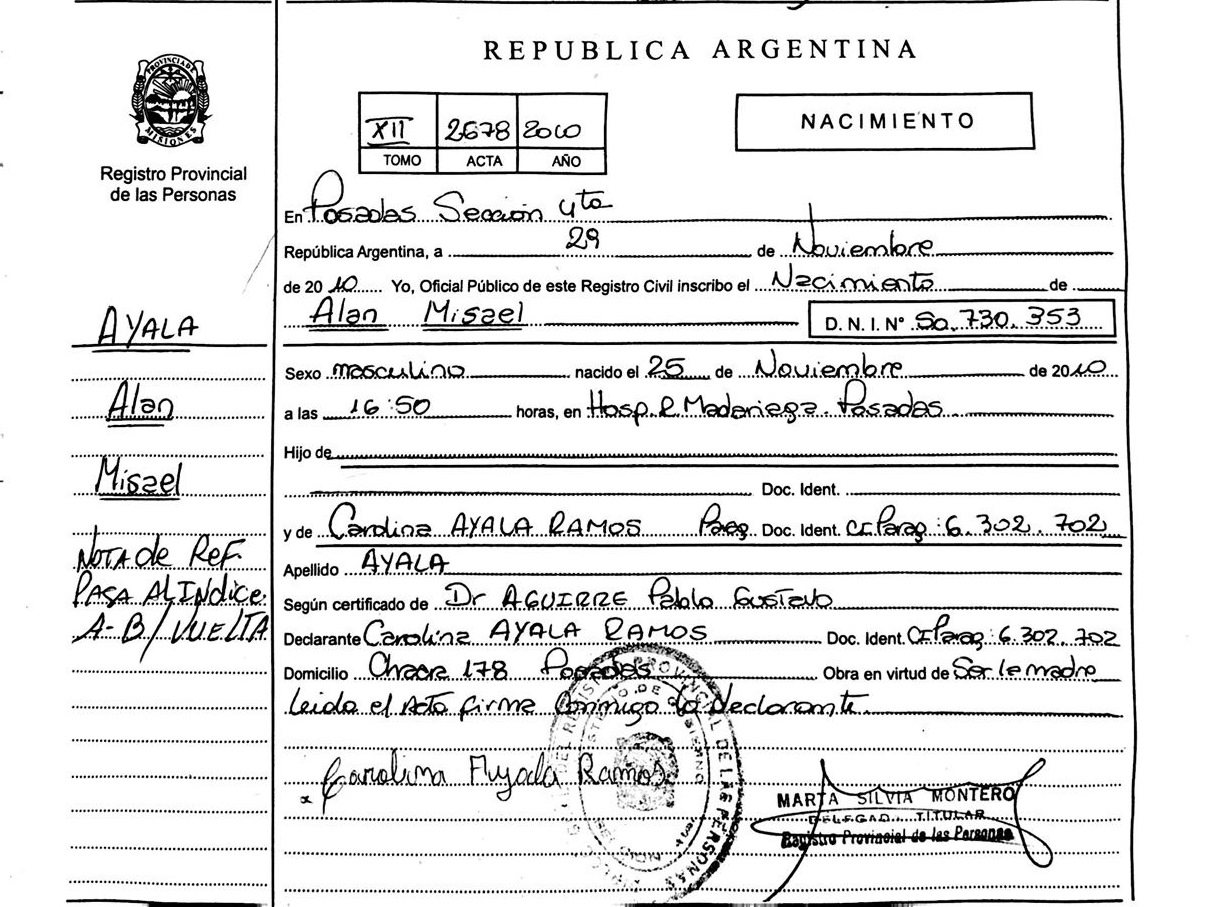 REPUBLICA ARGENTINA
PROVINCIA DE MISIONES
Registro Provincial
de las Personas
XII 2678 2010
TOMO ACTA AÑO
NACIMIENTO
En Posadas Sección 4ta
República Argentina, a 29 de Noviembre
de 2010 Yo, Oficial Público de este Registro Civil inscribo el Nacimiento de
Alan Misael D.N.I. Nº 50.730.353
Sexo masculino nacido el 25 de Noviembre de 2010
a las 16:50 horas, en Hosp. R. Madariaga. Posadas
Hijo de
Doc. Ident.
y de Carolina AYALA RAMOS Parag. Doc. Ident. CI Parag: 6.302.702
Apellido AYALA
Según certificado de Dr AGUIRRE Pablo Gustavo
Declarante Carolina AYALA RAMOS Doc. Ident. CI Parag: 6.302.702
Domicilio Chacra 178 Posadas Obra en virtud de Ser la madre
Leida el Acta firma Conmigo la Declarante.
Carolina Ayala Ramos
MARTA SILVIA MONTERO
DELEGADA TITULAR
Registro Provincial de las Personas
AYALA
Alan
Misael
NOTA de REF.
PASA AL INdice
A-B/VUELTA